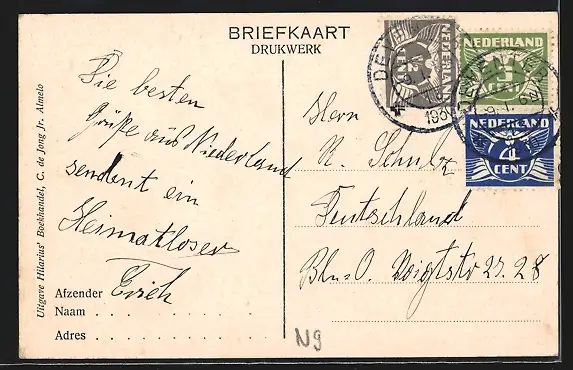 BRIEFKAART
DRUKWERK
Die besten
Grüße aus Niederland
sendent ein
Heimatloser
Erich
Afzender
Naam
Adres
Uitgave Hilarius' Boekhandel, C. de Jong Jr. Almelo
NEDERLAND
NEDERLAND
NEDERLAND
4
CENT
Herrn
N. Schulz
Deutschland
Bln-O. Voigtstr 27.28
N9